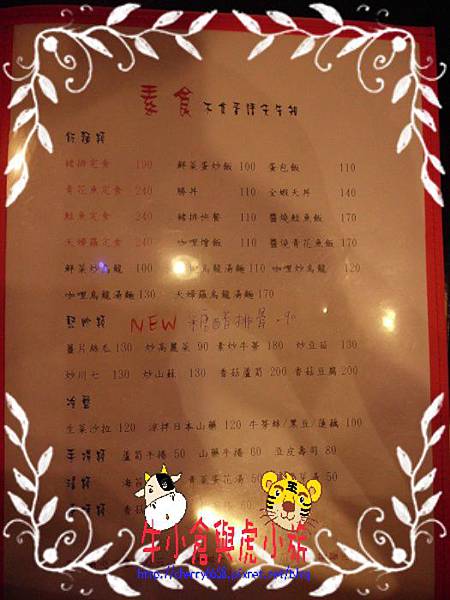 素食
飯麵類
豬排定食 190 鮮菜蛋炒飯 100 蛋包飯 110
青花魚定食 240 勝丼 110 全蝦天丼 140
鮭魚定食 240 豬排快餐 110 醬燒鮭魚飯 170
天婦羅定食 240 咖哩燴飯 110 醬燒青花魚飯 170
鮮菜炒烏龍 100 烏龍湯麵 110 咖哩炒烏龍 120
咖哩烏龍湯麵 130 天婦羅烏龍湯麵 170
熱炒類 NEW 糖醋排骨 -90
薑片絲瓜 130 炒高麗菜 90 素炒牛蒡 180 炒豆苗 130
炒川七 130 炒山蘇 130 香菇蘆筍 200 香菇豆腐 200
冷盤
生菜沙拉 120 涼拌日本山藥 120 牛蒡絲/黑豆/蓮藕 100
手捲類 蘆筍手捲 50 山藥手捲 60 豆皮壽司 80
湯類 青菜蛋花湯 50
牛小倉與虎小